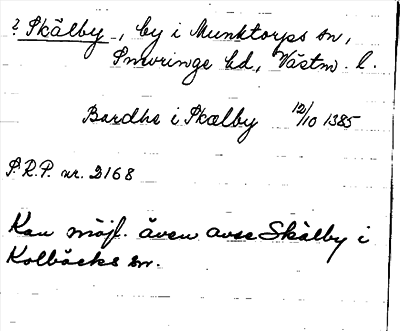 ? Skälby, by i Munktorps sn,
Snevringe hd, Västm. l.
Bardhe i Skælby 12/10 1385
S.R.P. nr. 2168
Kan möjl. även avse Skälby i
Kolbäcks sn.